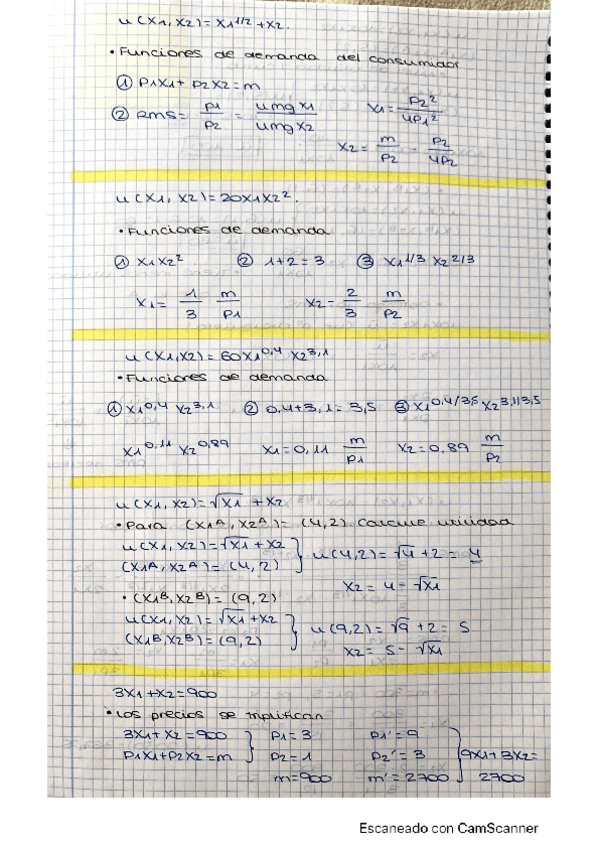 u(x1, x2) = x1^1/2 + x2.
• Funciones de demanda del consumidor
① p1x1 + p2x2 = m
② RMS = p1/p2 = umg x1/umg x2 x1 = p2²/4p1²
x2 = m/p2 - p2/4p2
u(x1, x2) = 20x1x2².
• Funciones de demanda
① x1x2² ② 1+2=3 ③ x1^1/3 x2^2/3
x1 = 1/3 m/p1 x2 = 2/3 m/p2
u(x1,x2) = 60x1^0,4 x2^3,1
• Funciones de demanda
① x1^0,4 x2^3,1 ② 0,4+3,1=3,5 ③ x1^0,4/3,5 x2^3,1/3,5
x1^0,11 x2^0,89 x1=0,11 m/p1 x2=0,89 m/p2
u(x1, x2) = √x1 + x2
• Para (x1^A, x2^A) = (4,2) calcule utilidad
u(x1, x2) = √x1 + x2
(x1^A, x2^A) = (4,2) } u(4,2) = √4 + 2 = 4
x2 = 4 - √x1
• (x1^B, x2^B) = (9,2)
u(x1, x2) = √x1 + x2
(x1^B x2^B) = (9,2) } u(9,2) = √9 + 2 = 5
x2 = 5 - √x1
3x1 + x2 = 900
• Los precios se triplifican
3x1 + x2 = 900 } p1 = 3 p1' = 9
p1x1 + p2x2 = m p2 = 1 p2' = 3 } 9x1 + 3x2 =
m = 900 m' = 2700 2700
Escaneado con CamScanner